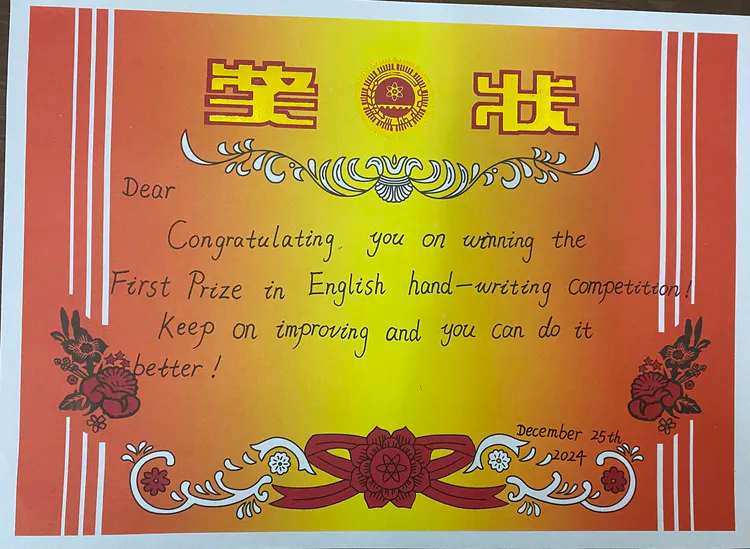 奖 状
Dear
Congratulating you on winning the
First Prize in English hand-writing competition!
Keep on improving and you can do it
better!
December 25th
2024